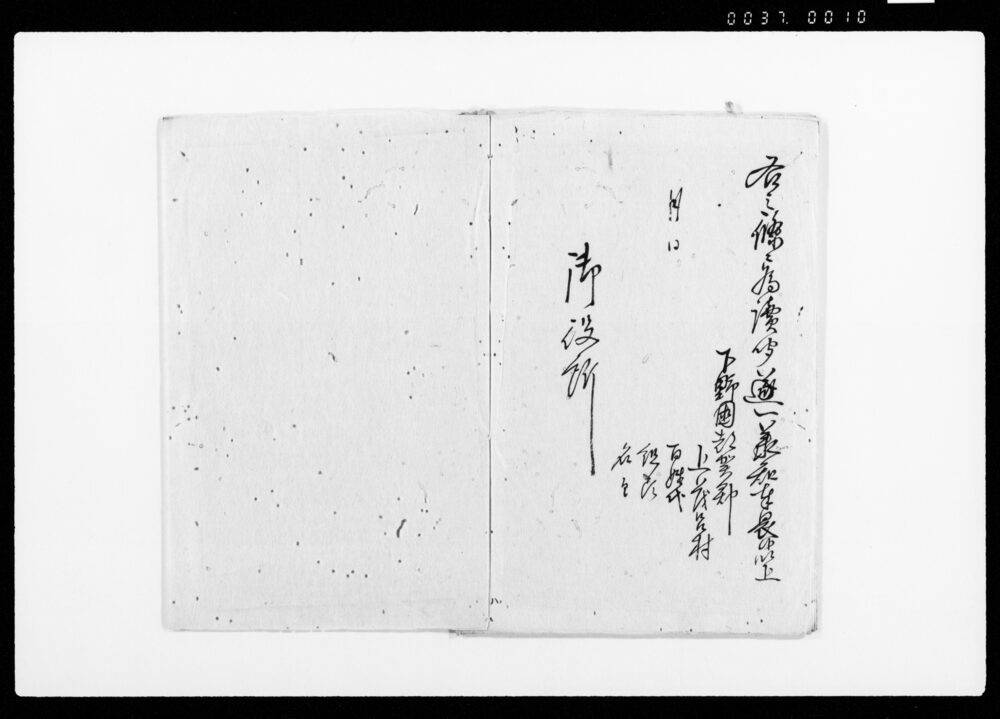 0037. 0010
右之條々為讀聞逐一承知奉畏候以上
下野國都賀郡
上茂呂村
百姓代
組頭
名主
月日
御役所